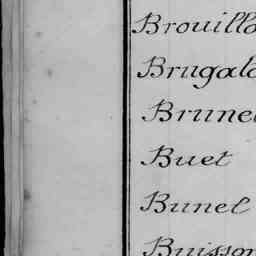 Brouillo
Brugalo
Brunel
Buet
Bunel
Buisson